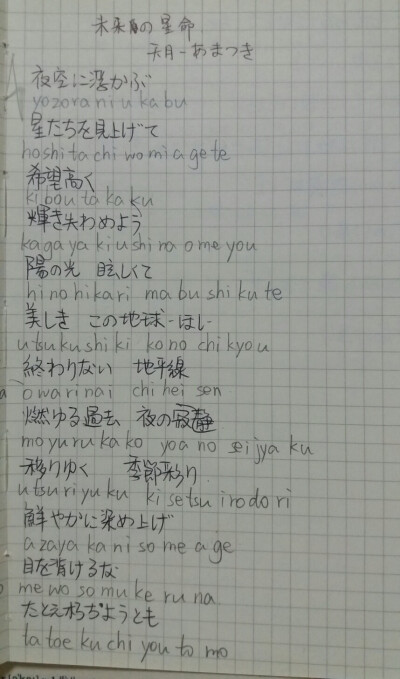 未来の星命
天月-あまつき
夜空に浮かぶ
yozora ni u ka bu
星たちを見上げて
hoshi ta chi wo mi a ge te
希望高く
ki bou ta ka ku
輝き失わぬよう
ka ga ya ki u shi na o me you
陽の光 眩しくて
hi no hi kari ma bu shi ku te
美しき この地球-ほし-
utsu ku shi ki ko no chi kyou
終わりない 地平線
owari nai chi hei sen
燃ゆる過去 夜の寂静
mo yu ru ka ko yo a no sei jya ku
移りゆく 季節彩り
utsu ri yu ku ki se tsu i ro do ri
鮮やかに染め上げ
a za ya ka ni so me a ge
目を背けるな
me wo so mu ke ru na
たとえ朽ちようとも
ta to e ku chi you to mo